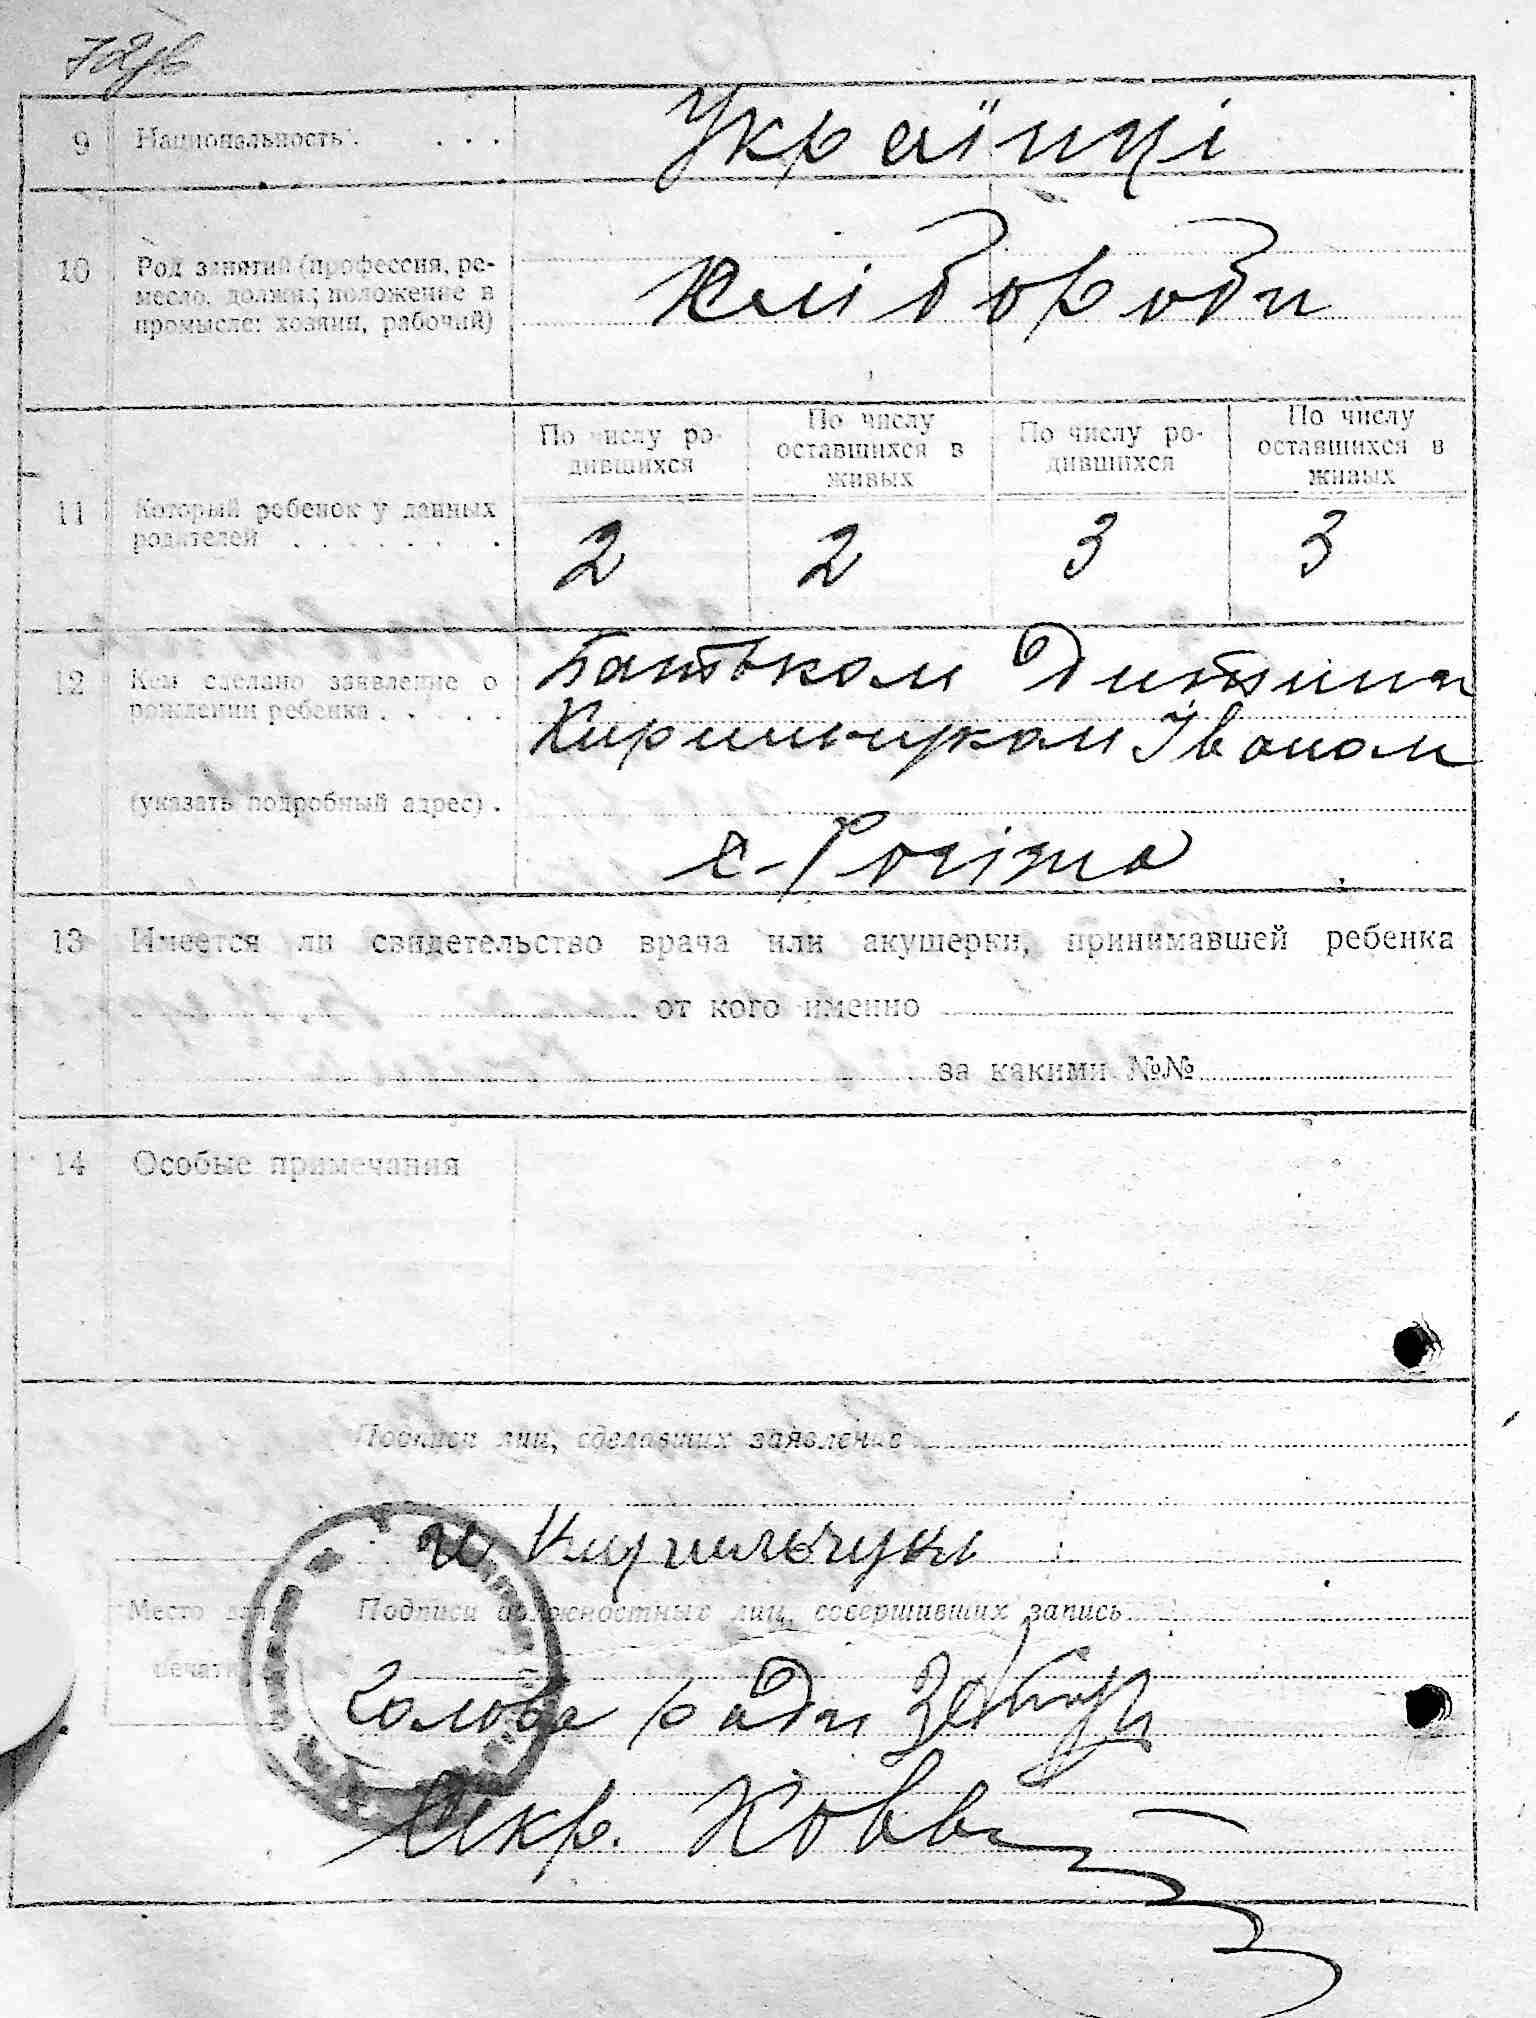 72зв
9 Национальность. . . .
Українці
10 Род занятий (профессия, ре-
месло, должн.; положение в
промысле: хозяин, рабочий)
Хлібороби
По числу ро-
дившихся
По числу
оставшихся в
живых
По числу ро-
дившихся
По числу
оставшихся в
живых
11 Который ребенок у данных
родителей . . . . . . . .
2 2 3 3
12 Кем сделано заявление о
рождении ребенка . . . . .
Батьком Дитини
Кирильчуком Іваном
(указать подробный адрес) .
с-
13 Имеется ли свидетельство врача или акушерки, принимавшей ребенка
от кого именно
за какими №№
14 Особые примечания
Подписи лиц, сделавших заявление
Кирильчукъ
Место для
печати
Подписи должностных лиц, совершивших запись
Голова ради